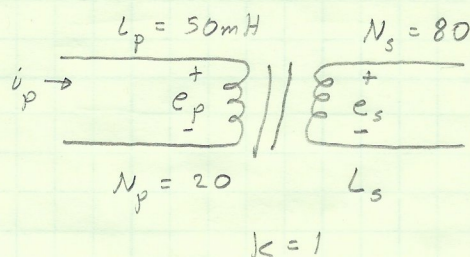 L_p = 50mH N_s = 80
i_p → + e_p - + e_s -
N_p = 20 L_s
k = 1